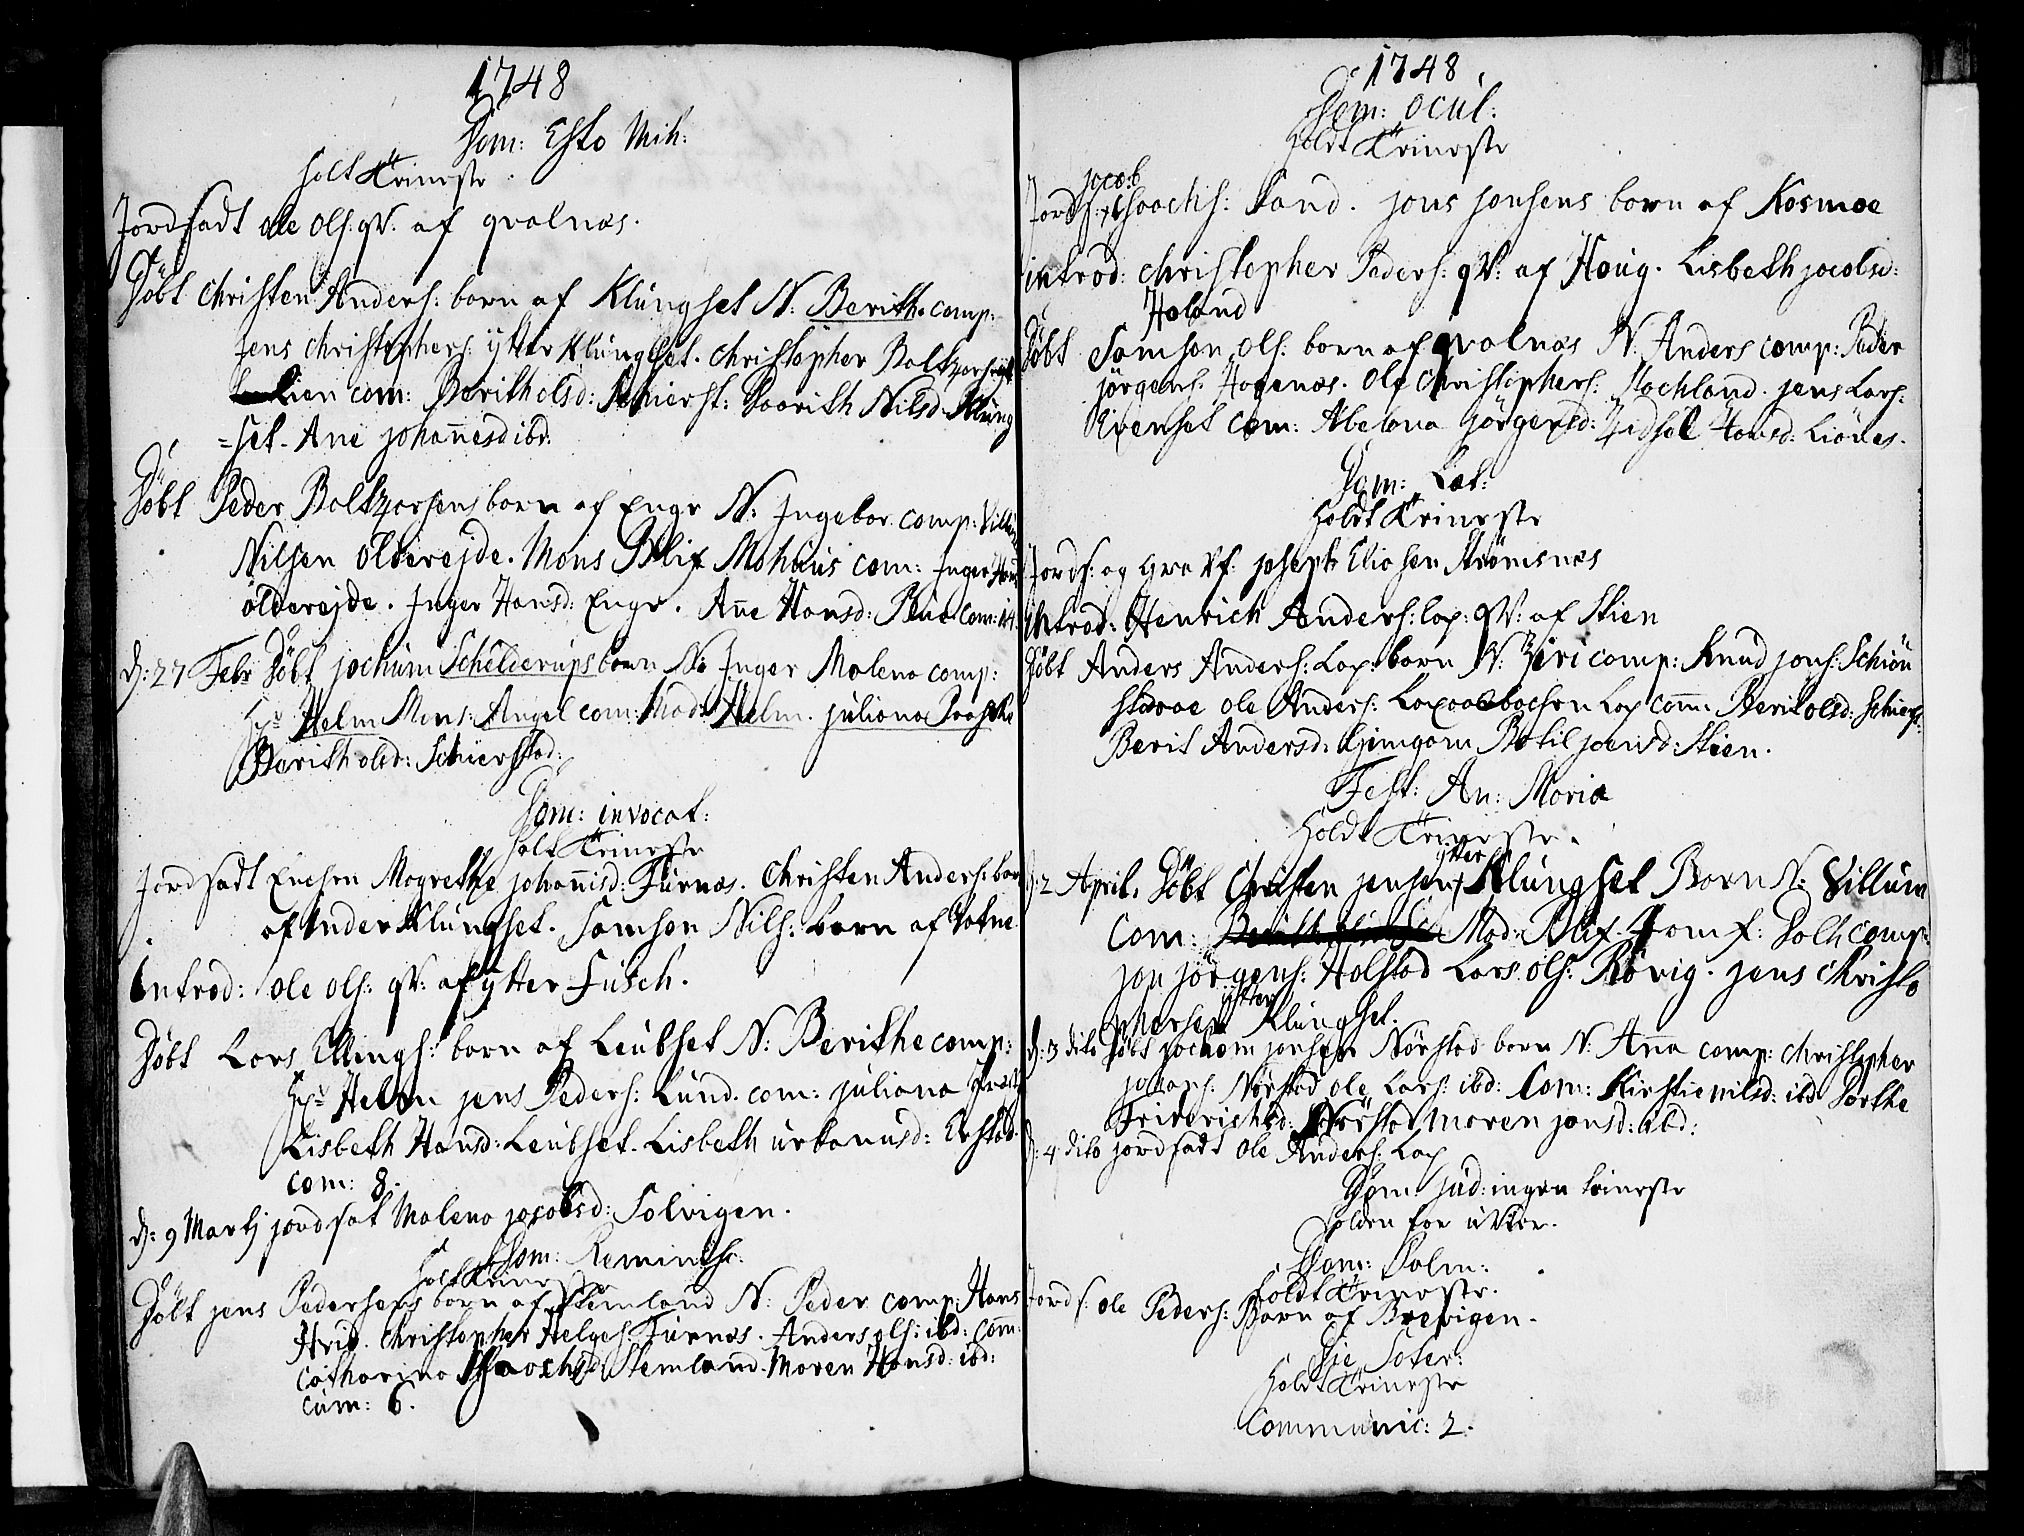 1748
Dom: Esto Mih:
holt tieniste.
Jordfadt ole ols: qV: af qvalnæs.
Döbt Christen Anders: barn af Klüngset N: Berithe comp:
Jens Christophers: ytter Klüngset. Christopher Baltzars:
lien com: Berith olsd: Schierst: Paarith Nilsd: Klüng
=set. Ane johañesd ibd:
Döbt Peder Baltzarsens barn af Enge N: Ingebor comp: Villum
Nilsen olderejde. Mons Blix Mohüüs com: Inger Hans
olderejde. Inger Hansd: Enge. Añe Hansd: com: 14.
D: 27 Febr Döbt jochüm Schelderups barn N: Inger Malena comp:
Hr Helm Mons: Angel com: Mad: Helm. juliana Paaske
Berith olsd: Schierstad:
Dom: invocat:
holt tieniste
Jordfadt Enchen Magrethe johañisd: Fürnæs. Christen Anders: barn
af Inder Klüngset. Samson Nils: barn af Vatne
Introd: ole ols: qV: af ytter Füsch.
Döbt Lars Ellings: barn af Leübset N: Berithe comp:
Hr Helm jens Peders: Lünd. com: juliana
Lisbeth Hansd: Leübset. Lisbeth ürbanüsd: Erstad.
com: 8.
D: 9 Martj jordfat Malena jacobsd: Solvigen.
Dom: Reminisc:
holt tieniste
Döbt jens Pedersens barn af Stemland N: Peder comp: Hans
Hvid. Christopher Helges: Fürnæs. Anders ols: ibd: com:
Catharina Stemland. Maren Hansd: ibd:
cüm: 6.
1748
Dom: ocül:
holdt tieniste
jacob
Jordf: Isaachs: Sand. jons jonsens barn af Kosmoe
introd: Christopher Peders: qV: af Haüg. Lisbeth jacobsd:
Haland
Döbt Samson ols: barn af qvalnæs N: Anders comp: Peder
jörgens: Hogenæs. Ole Christophers: Stochland. jens Lars:
Evenset com: Abelona jörgensd: Zidsel Hansd: Liönes.
Dom: Læt:
holdt tieniste
Jordf: og gra Vf: joseph Eliasen Strömsnæs
introd: Henrich Anders: lap: qV: af Stien
Döbt Anders Anders: Lap: barn N: Ziri comp: Knud jons: Schiön
staae ole Anders: Lap com: Berit olsd: Schierst:
Berit Andersd: Giemgam Botil joensd: Stien.
Fest: An: Mariæ
holdt tieniste.
D: 2 April. Döbt Christen jensen ytter Klüngset Barn N: Villum
com: Mad: Blix. Jomf: Dolh comp:
jon jörgens: Halstad Lars ols: Rörvig. jens Christo
phersen ytter Klüngset.
D: 3 dito Döbt jochom jonsen Nörstad barn N: Anna comp: Christopher
jacobs: Nörstad ole Lars: ibd: Com: Kirstie nilsd: ibd Dorthe
Friderichsd: Nörstad Maren jonsd: ibd:
D: 4 dito jordfadt ole Anders: Lap
Dom: jüd: ingen tieneste
holden for üVeir.
Dom: Palm:
holdt tieniste.
Jordf: ole Peders: Barn af Brevigen.
Die Soter:
holdt tieniste
Communic: 2.